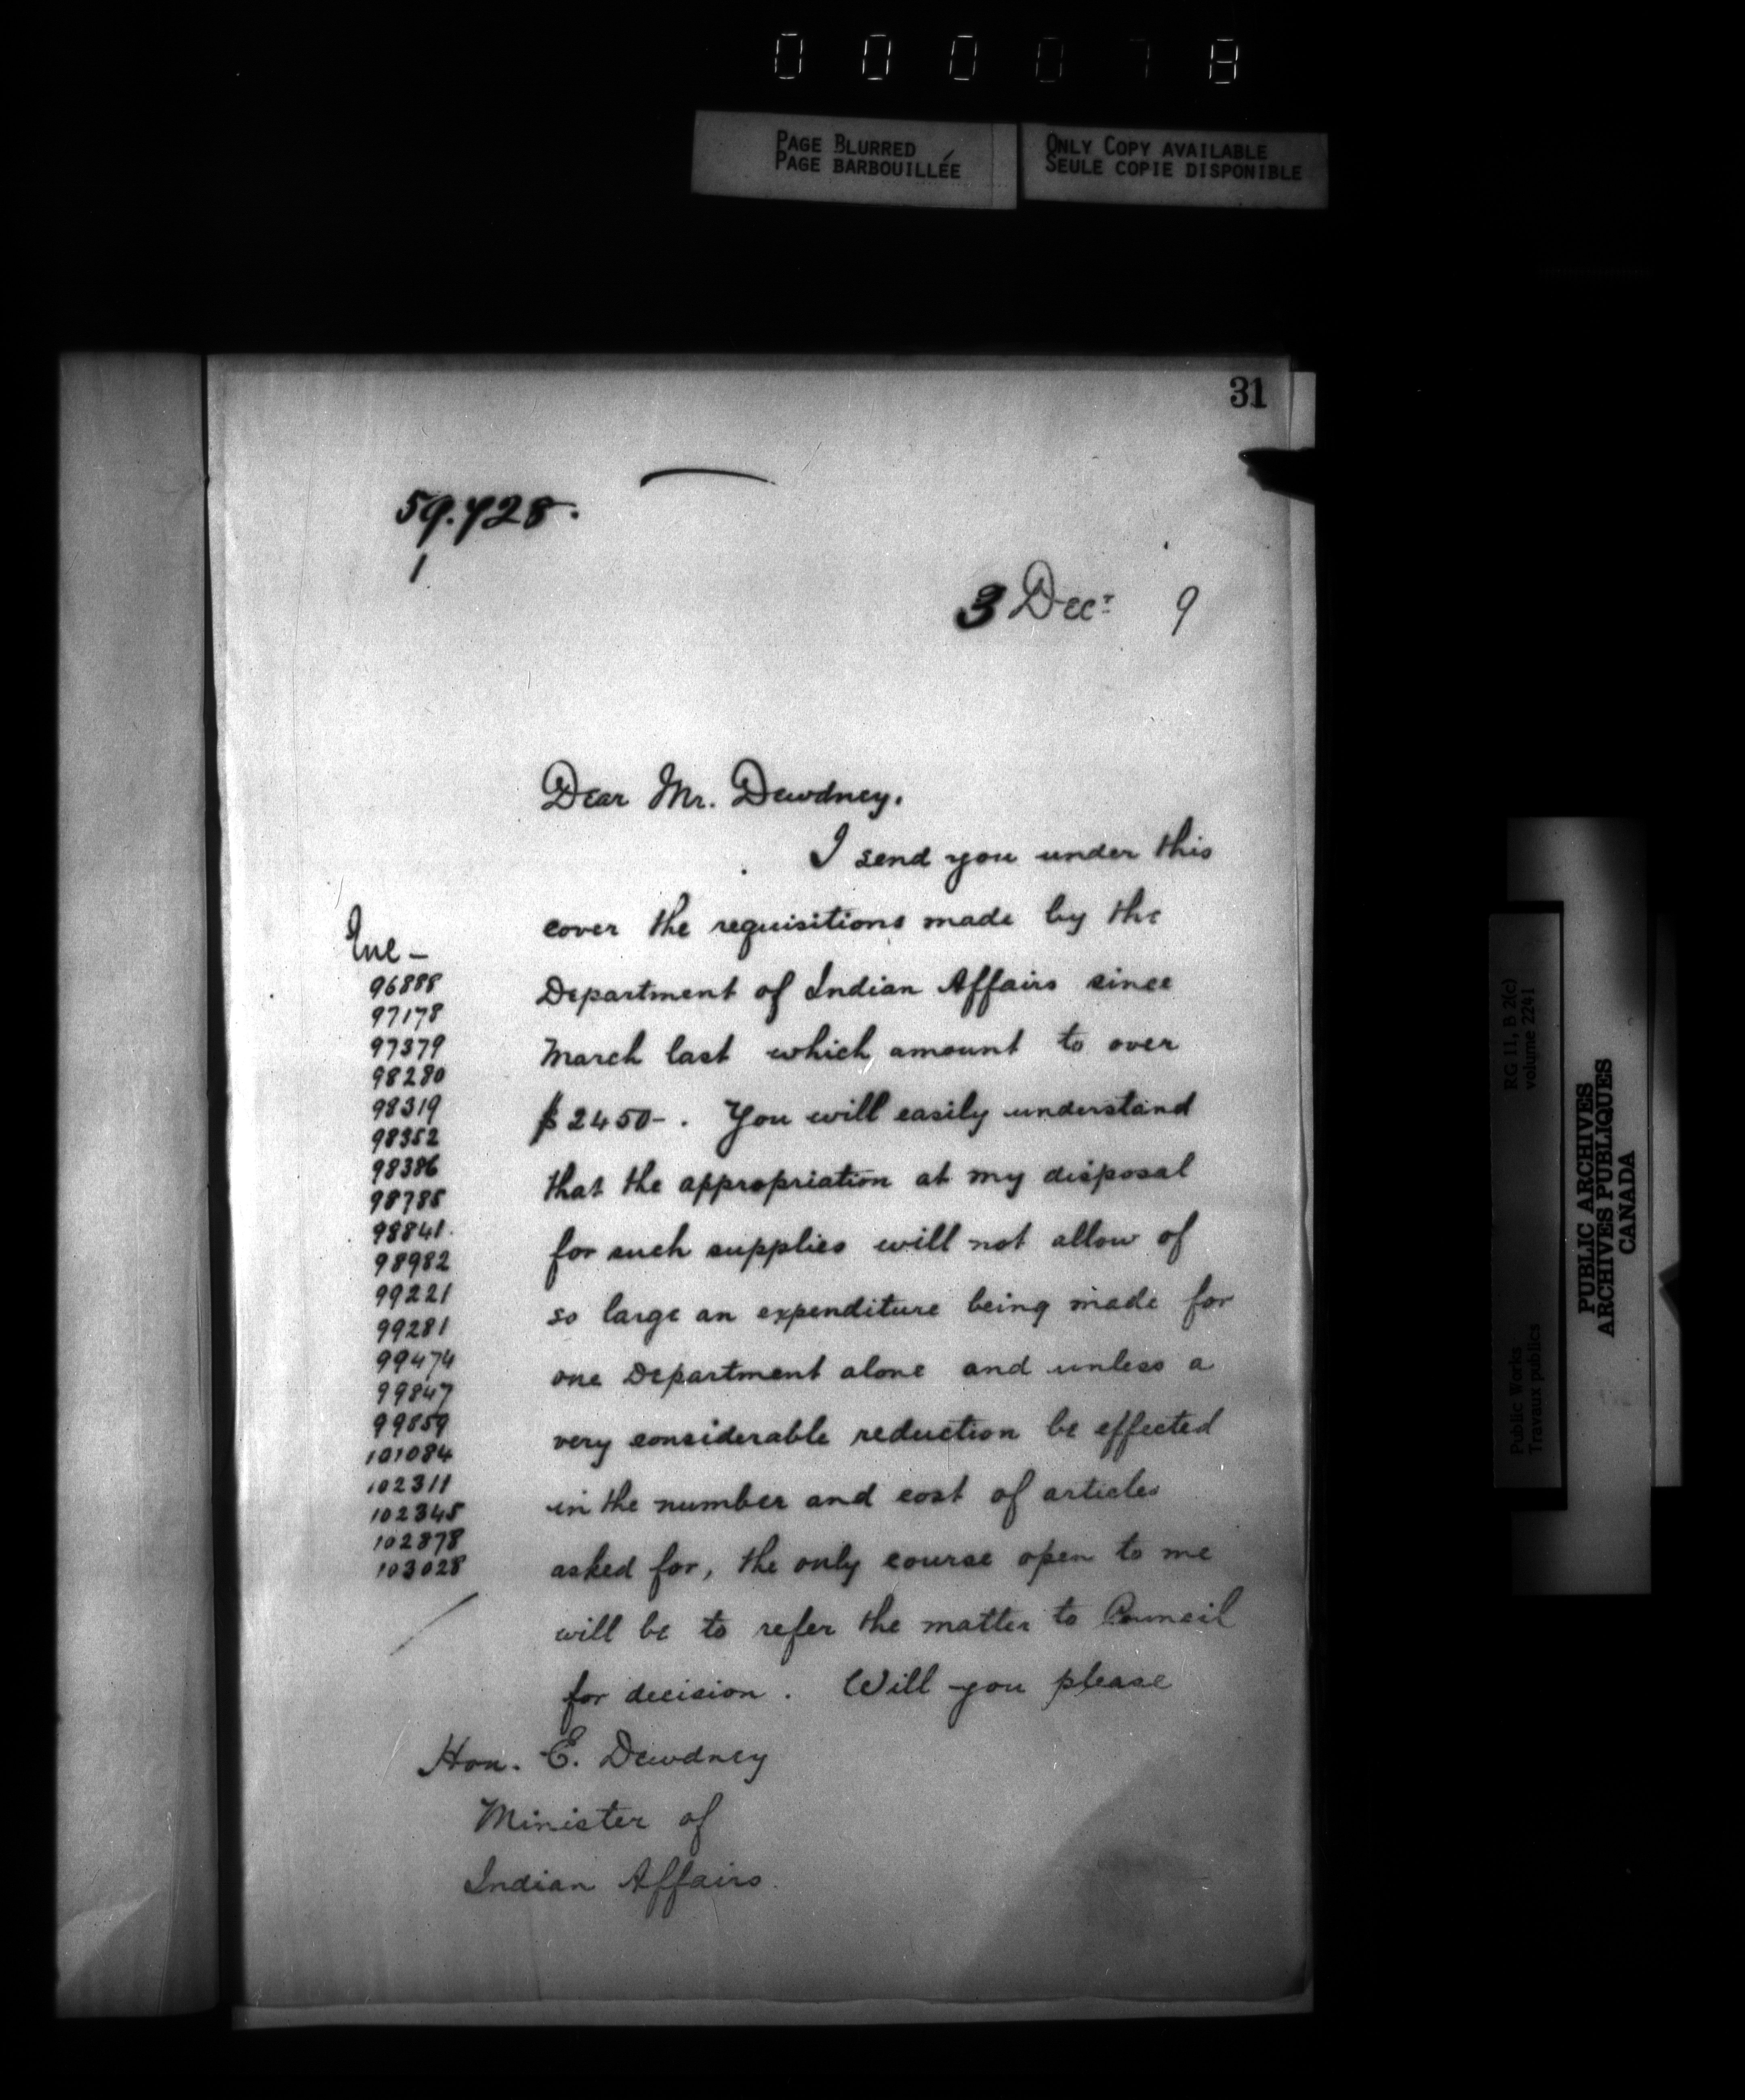 000078
PAGE BLURRED
PAGE BARBOUILLÉE
ONLY COPY AVAILABLE
SEULE COPIE DISPONIBLE
31
59.728.
1
3 Decr 9
Dear Mr. Dewdney.
I send you under this
cover the requisitions made by the
Department of Indian Affairs since
March last which amount to over
$2450-. You will easily understand
that the appropriation at my disposal
for such supplies will not allow of
so large an expenditure being made for
one Department alone and unless a
very considerable reduction be effected
in the number and cost of articles
asked for, the only course open to me
will be to refer the matter to Council
for decision. Will you please
Inc -
96888
97178
97379
98280
98319
98352
98386
98785
98841.
98982
99221
99281
99474
99847
99859
101084
102311
102345
102878
103028
Hon. E. Dewdney
Minister of
Indian Affairs.
RG 11, B 2(c)
volume 2241
Public Works
Travaux publics
PUBLIC ARCHIVES
ARCHIVES PUBLIQUES
CANADA